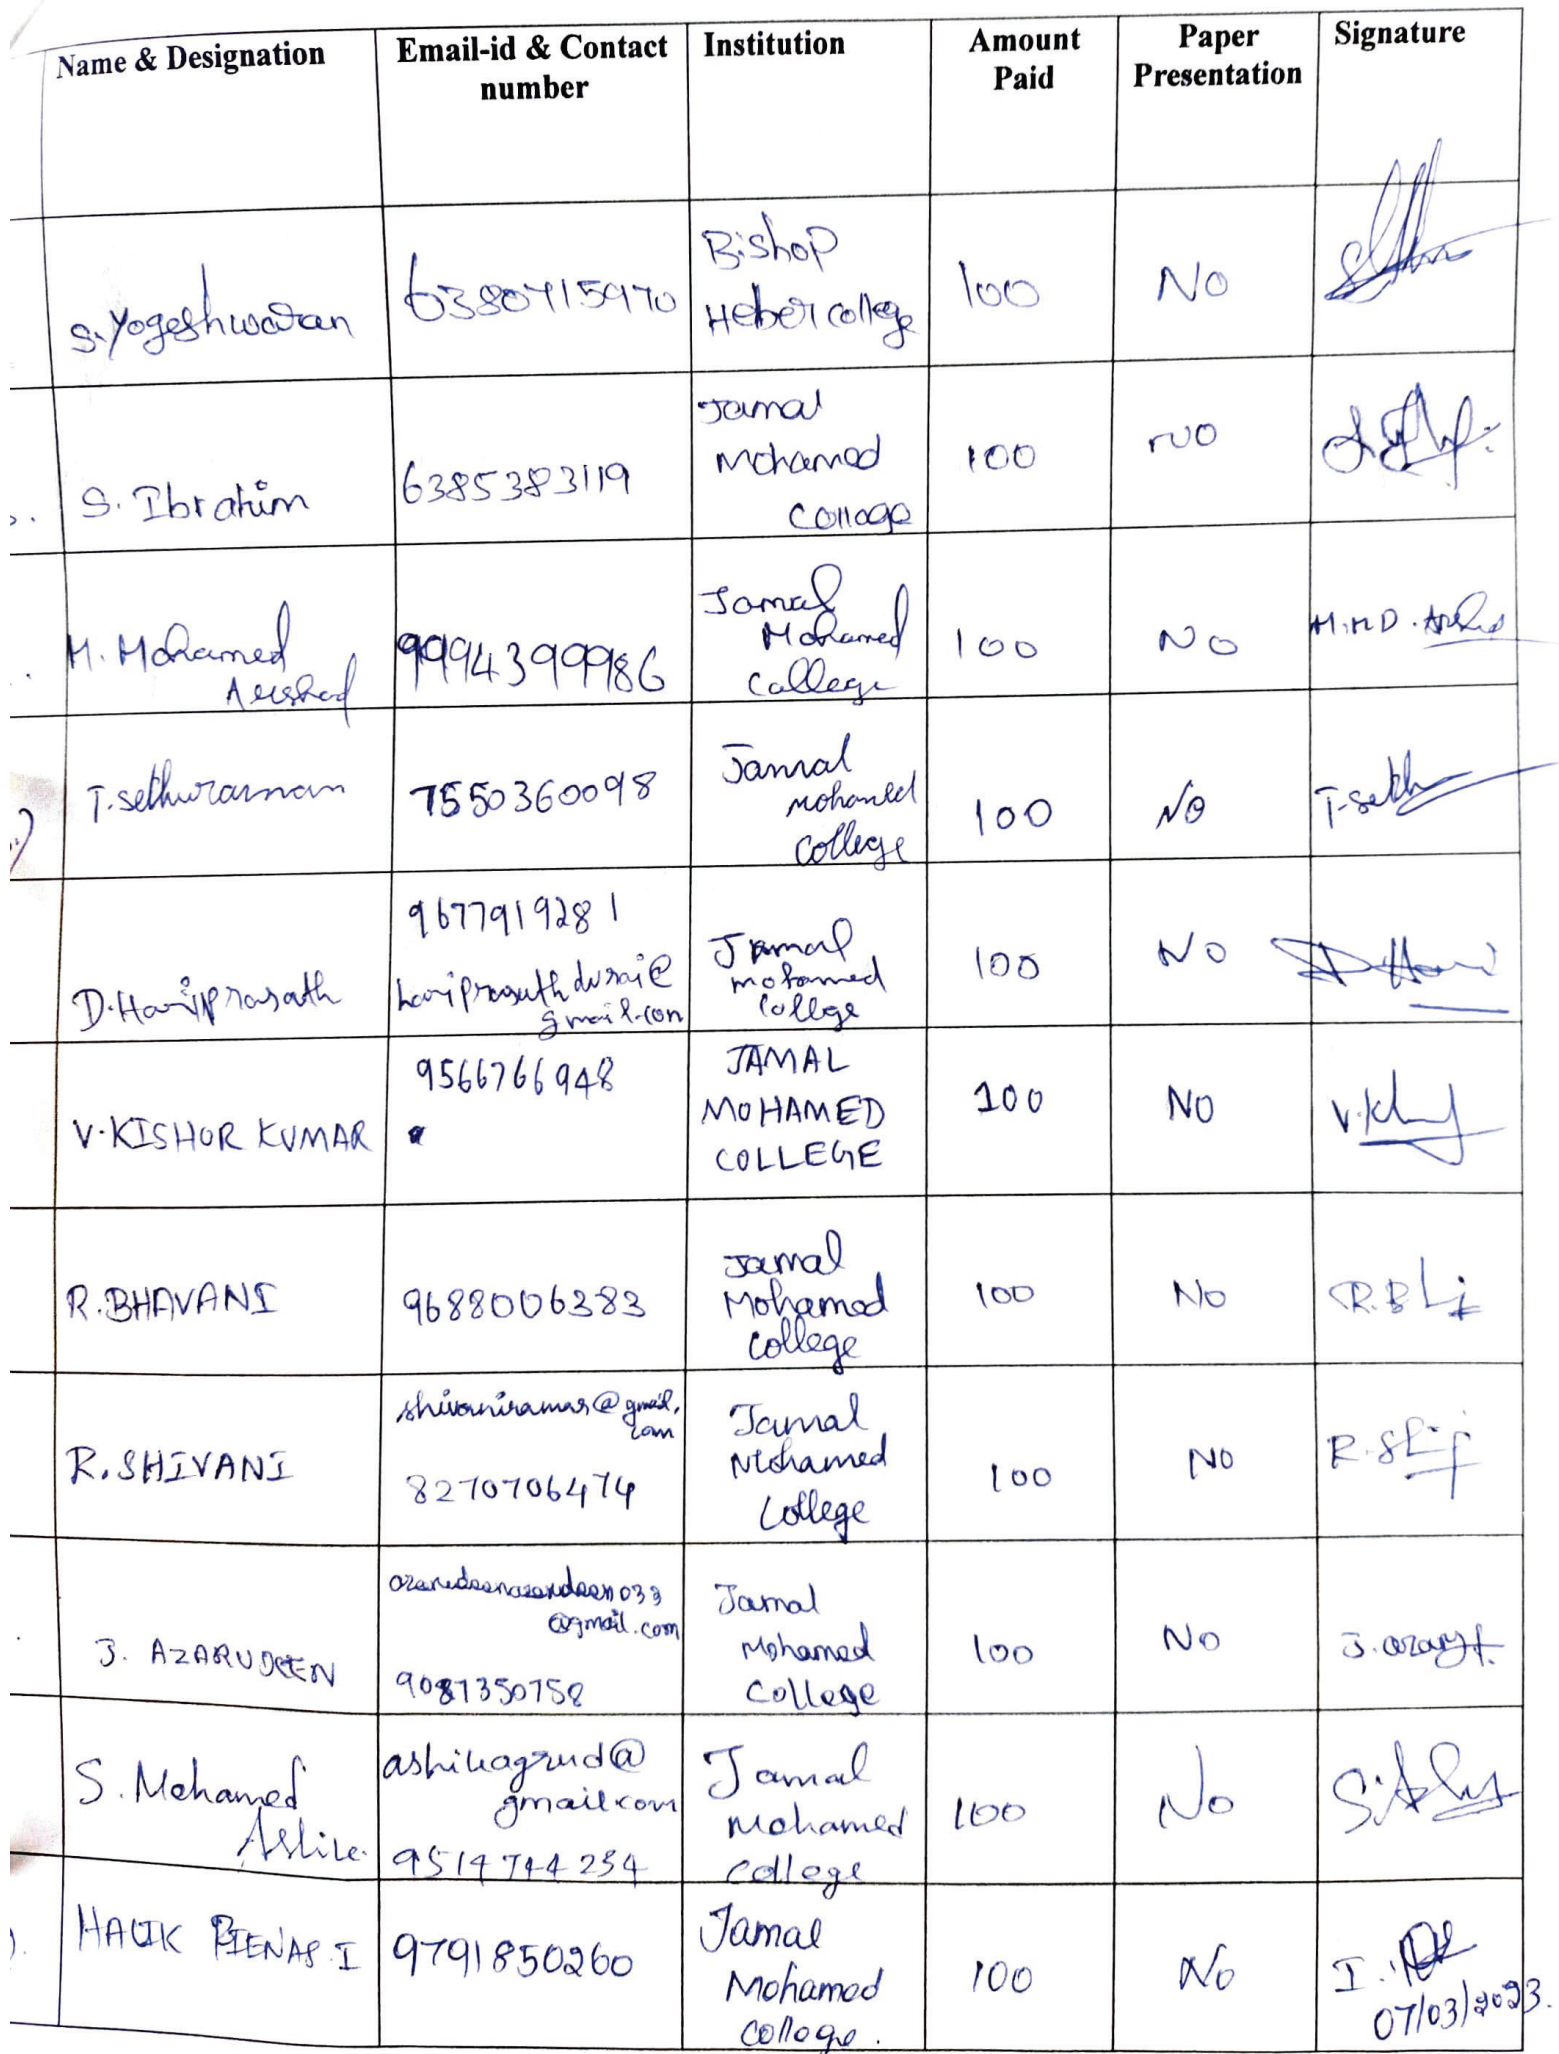 Name & Designation
Email-id & Contact
number
Institution
Amount
Paid
Paper
Presentation
Signature
S. Yogeshwaran
6380715970
Bishop
Heber college
100
No
S. Ibrahim
6385383119
Jamal
Mohamed
College
100
NO
M. Mohamed
Arshad
9994399986
Jamal
Mohamed
College
100
No
M.MD.
T. sethuraman
7550360098
Jamal
mohamed
college
100
No
T-seth
D. Hariprasath
9677919281
hariprasathdurai@
gmail.com
Jamal
mohamed
college
100
No
V. KISHOR KUMAR
9566766948
JAMAL
MOHAMED
COLLEGE
100
NO
R. BHAVANI
9688006383
Jamal
Mohamed
college
100
No
R. SHIVANI
shivaniramar@gmail.
com
8270706474
Jamal
Mohamed
College
100
No
J. AZARUDEEN
033
@gmail.com
9087350758
Jamal
Mohamed
College
100
No
S. Mohamed
gmail.com
9514744254
Jamal
Mohamed
College
100
No
I
9791850260
Jamal
Mohamed
College.
100
No
I.
07/03/2023.